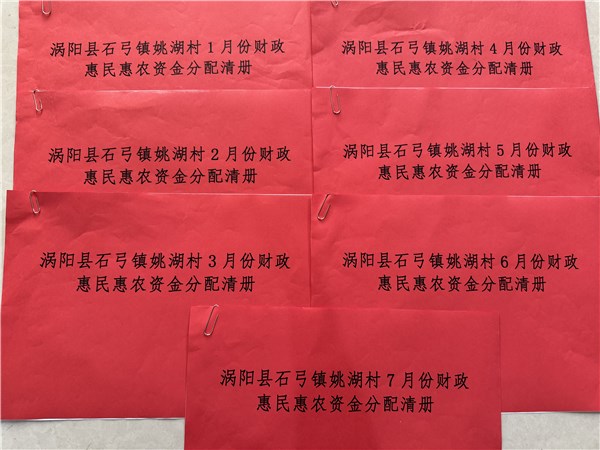 涡阳县石弓镇姚湖村1月份财政
惠民惠农资金分配清册
涡阳县石弓镇姚湖村2月份财政
惠民惠农资金分配清册
涡阳县石弓镇姚湖村3月份财政
惠民惠农资金分配清册
涡阳县石弓镇姚湖村4月份财政
惠民惠农资金分配清册
涡阳县石弓镇姚湖村5月份财政
惠民惠农资金分配清册
涡阳县石弓镇姚湖村6月份财政
惠民惠农资金分配清册
涡阳县石弓镇姚湖村7月份财政
惠民惠农资金分配清册